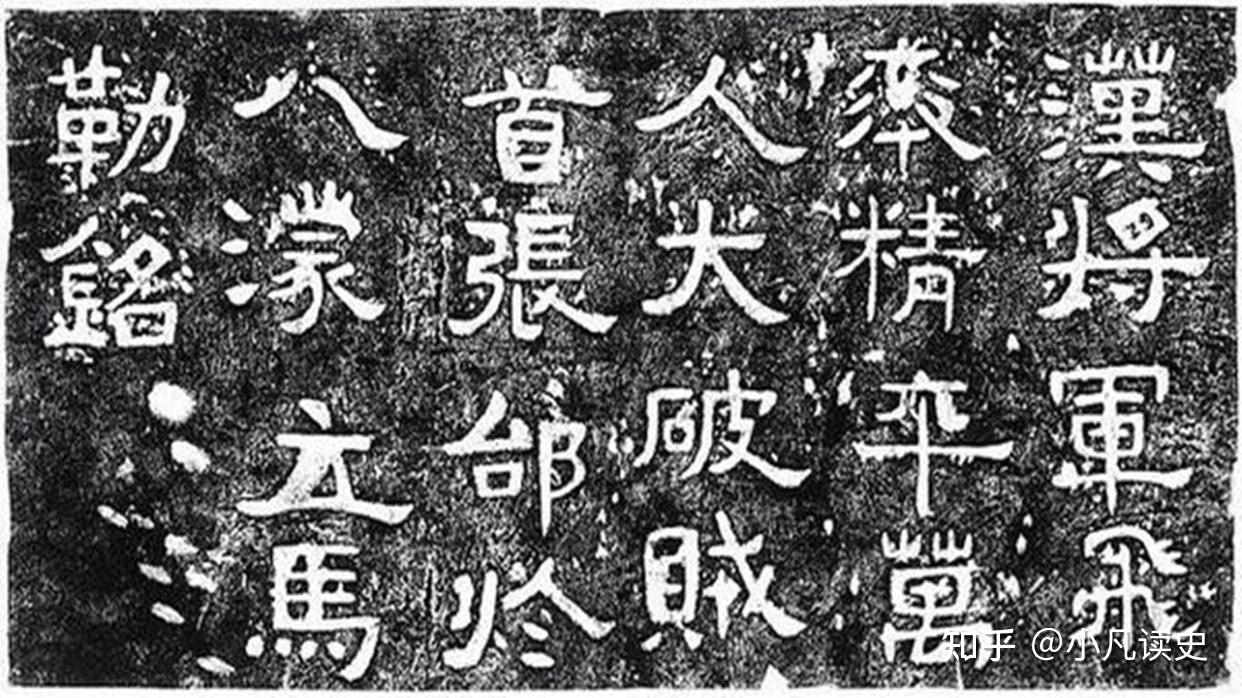 漢將軍飛
率精卒萬
人大破賊
首張郃於
八濛立馬
勒銘
知乎 @小凡读史